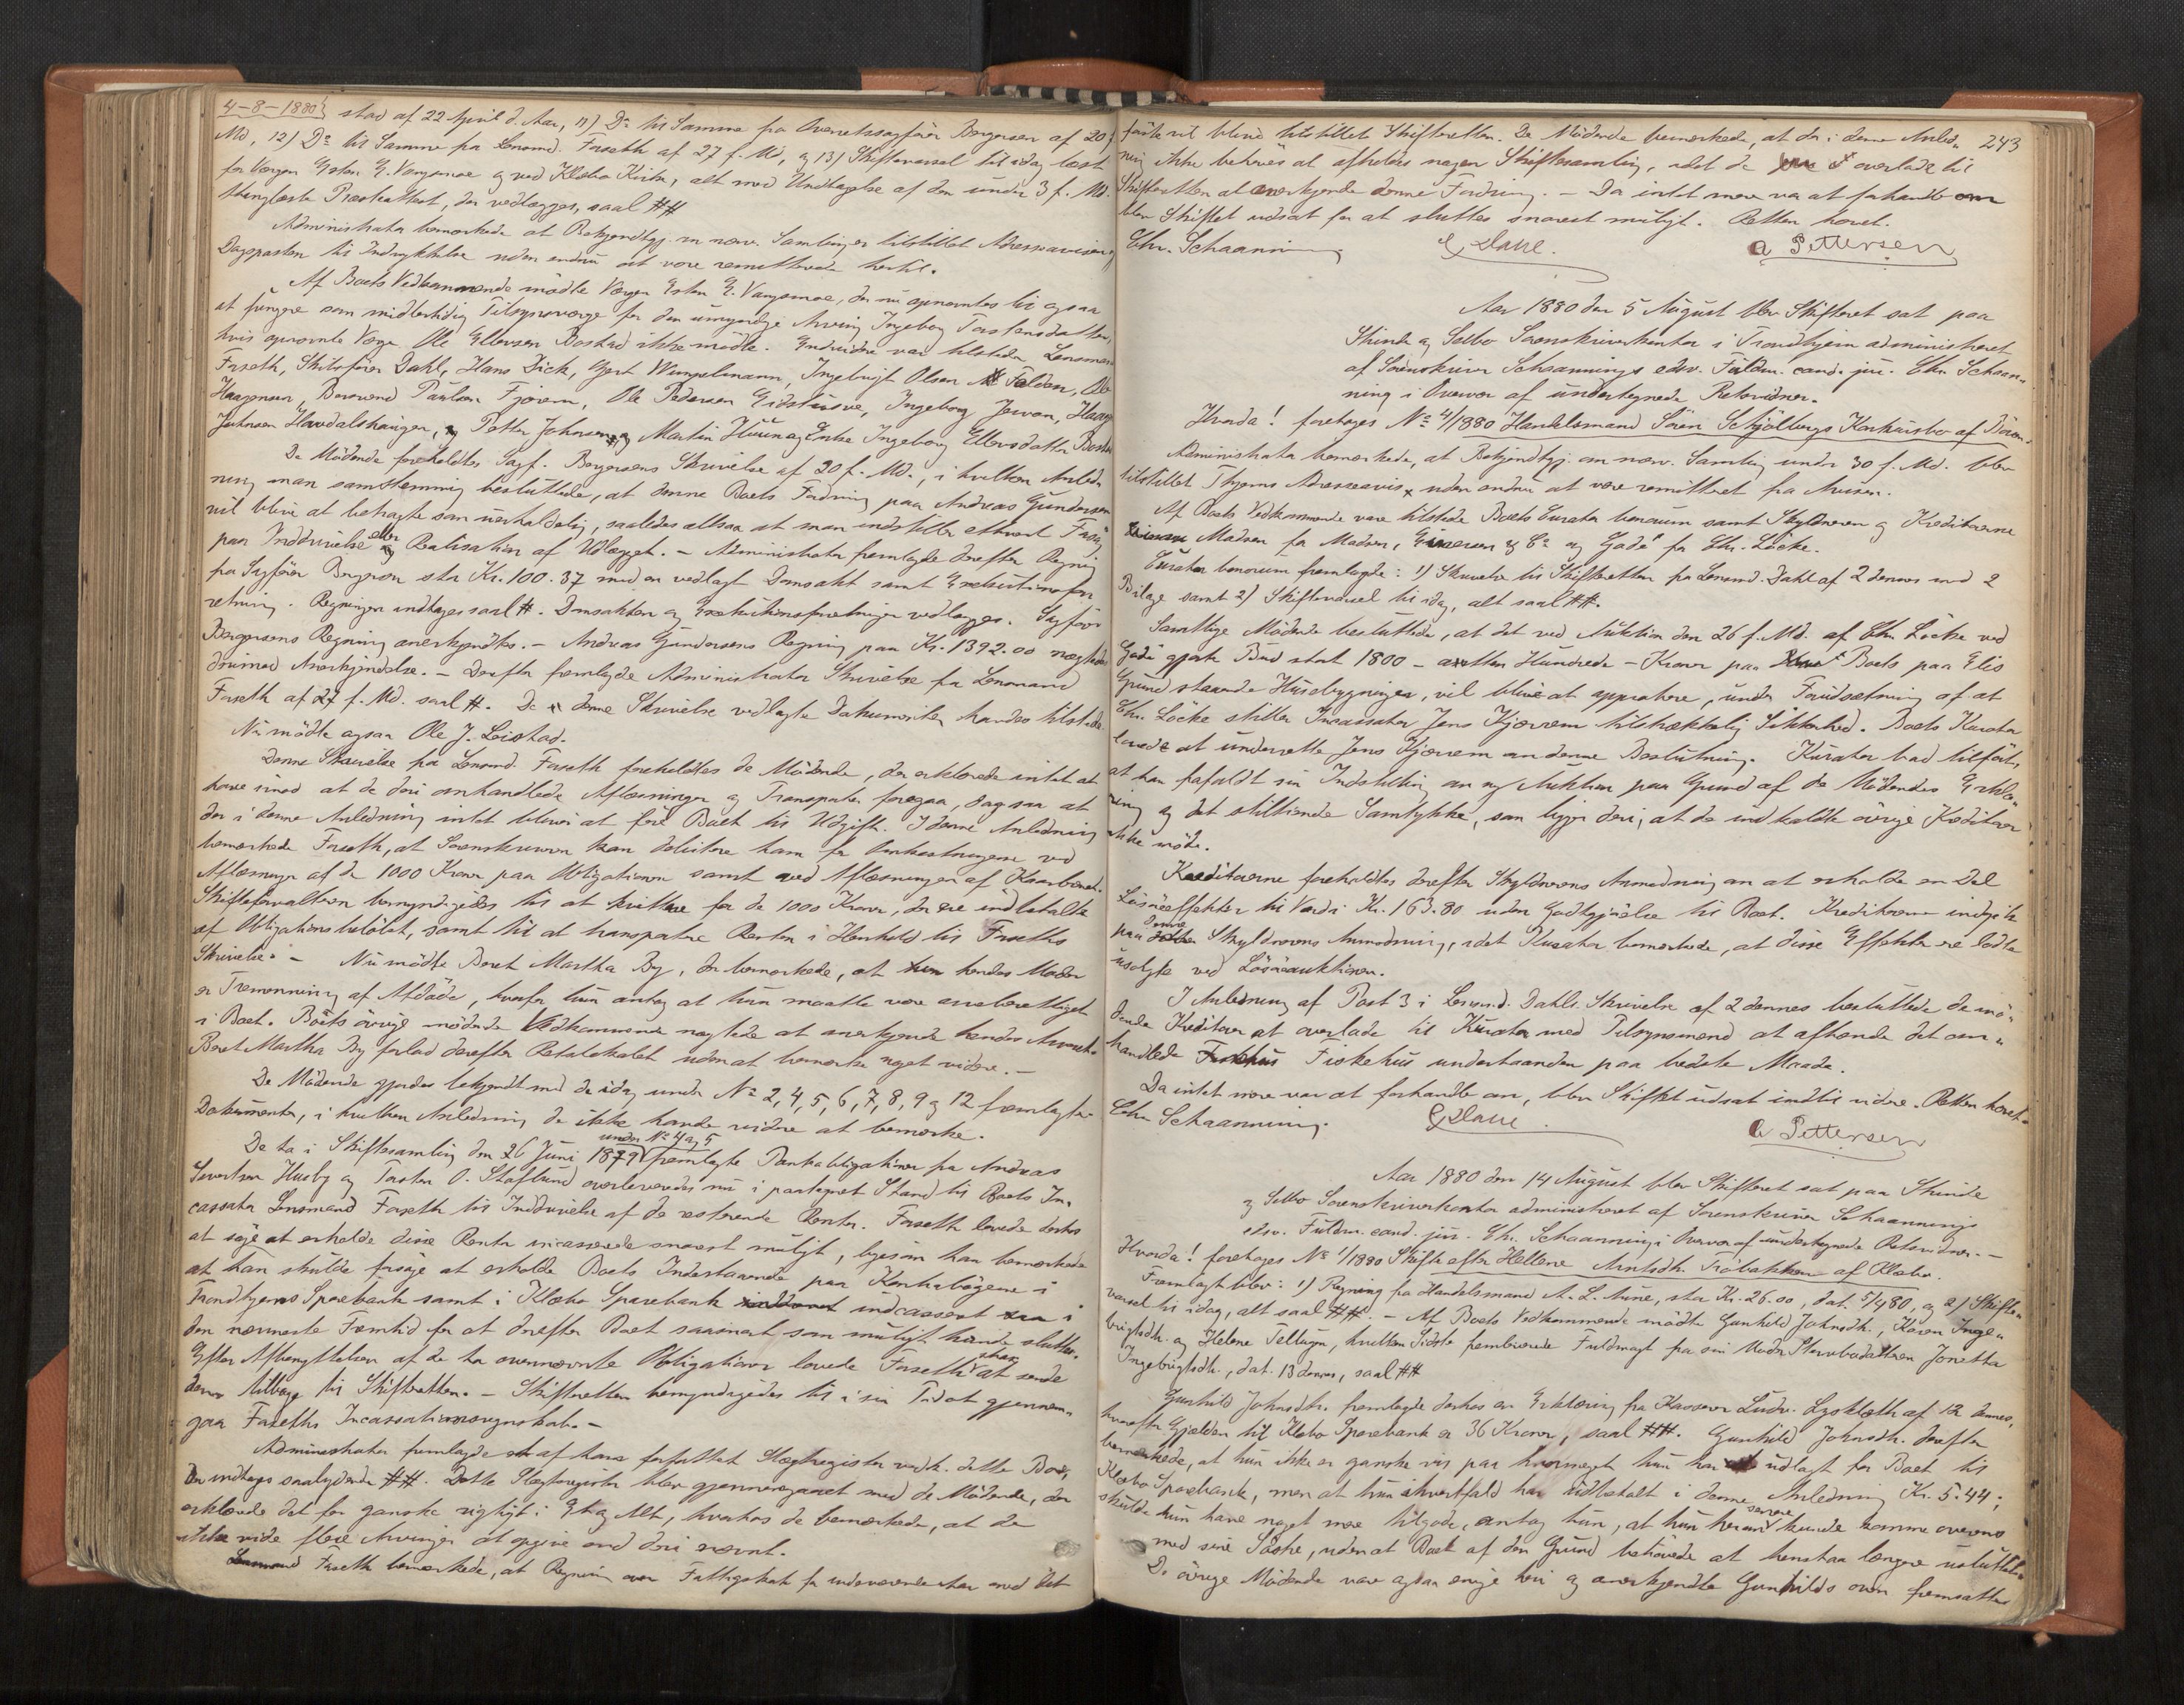 4-8-1880
stad af 22 April d. Aar, 11) Do til Samme fra Overretssagfører Borgersen af 20 f.
Md, 12) Do til Samme fra Lensmd. Forseth af 27 f. Md, og 13) Skiftevarsel til idag læst
for Værgen Esten E. Vangsmoe og ved Klæbo Kirke, alt med Undtagelse af den under 3 f. Md.
thinglæste Præsteattest, der vedlægges, saal ##
Administrator bemærkede at Bekjendtgj. om nærv. Samling er tilstillet Adresseavisen og
Dagsposten til Indrykkelse uden endnu at være remitteret hertil.
Af Boets Vedkommende mødte Værgen Esten E. Vangsmoe, der nu opnævntes til ogsaa
at fungere som midlertidig Tilsynsværge for den umyndige Arving Ingeborg Torstensdatter,
hvis opnævnte Værge Ole Ellevsen Bostad ikke mødte. Endvidere var tilstede Lensmand
Forseth, Skibsfører Dahl, Hans Dick, Gjert Wimpelmann, Ingebrigt Olsen Folden, Ole
Haagensen, Berovend Paulsen Fjærem, Ole Pedersen Eidstusve, Ingeborg Jervan, Haagen
Johnsen Havdalshaugen, Petter Johnsen og Martin Huun og Enke Ingeborg Ellevsdatter Bostad
De Mødende foreholdtes Sagf. Borgersens Skrivelse af 20 f. Md., i hvilken Anled-
ning man samstemmig besluttede, at denne Boets Fordring paa Andreas Gundersen
vil blive at betragte som uerholdelig, saaledes altsaa at man indstiller ethvert Forsøg
paa Inddrivelse eller Realisation af Udlægget. - Administrator fremlagde derefter Regning
fra Sagfører Borgersen stor Kr. 100.37 med en vedlagt Domsakt samt Exekutionsfor
retning. Regningen indtages saal #. Domsakten og Exekutionsforretningen vedlægges. Sagfører
Borgersens Regning anerkjendtes. - Andreas Gundersens Regning paa Kr. 1392.00 nægtedes
derimod Anerkjendelse. - Derefter fremlagde Administrator Skrivelse fra Lensmand
Forseth af 27 f. Md. saal #. De denne Skrivelse vedlagte Dokumenter havdes tilstede.
Nu mødte ogsaa Ole J. Leistad.
Denne Skrivelse fra Lensmd. Forseth foreholdtes de Mødende, der erklærede intet at
have imod at de deri omhandlede Aflæsninger og Transporter foregaa, dog saa at
der i denne Anledning intet bliver at føre Boet til Udgift. I denne Anledning
bemærkede Forseth, at Sorenskriveren kan debitere ham for Omkostningerne ved
Aflæsningen af de 1000 Kroner paa Obligationen samt ved Aflæsningen af Kaarbrevet.
Skifteforvalteren bemyndigedes til at kvittere for de 1000 Kroner, der ere indbetalte
af Obligationsbeløbet, samt til at transportere Resten i Henhold til Forseths
Skrivelse. - Nu mødte Beret Martha By, der bemærkede, at hendes Moder
er Tremenning af Afdøde, hvorfor hun antog at hun maatte være arveberettiget
i Boet. Boets øvrige mødende Vedkommende nægtede at anerkjende hendes Arveret.
Beret Martha By forlod derefter Retslokalet uden at bemærke noget videre. -
De Mødende gjordes bekjendt med de idag under No 2, 4, 5, 6, 7, 8, 9 og 12 fremlagte
Dokumenter, i hvilken Anledning de ikke havde videre at bemærke.
De to i Skiftesamling den 26 Juni 1879 under No 4 og 5 fremlagte Panteobligationer fra Andreas
Sivertsen Husby og Torsten O. Stoflund overleveredes nu i paategnet Stand til Boets In-
cassator Lensmand Forseth til Inddrivelse af de resterende Renter. Forseth lovede derhos
at søge at erholde disse Renter incasserede snarest muligt, ligesom han bemærkede
at han skulde forsøge at erholde Boets Indestaaende paa Kontrabøgerne i
Trondhjems Sparebank samt i Klæbo Sparebank indcasseret i
den nærmeste Fremtid for at derefter Boet saasnart som muligt kunde sluttes.
Efter Afbenyttelsen af de to ovennævnte Obligationer lovede Forseth strax at sende
dem tilbage til Skifteretten. - Skifteretten bemyndigedes til i sin Tid at gjennem-
gaa Forseths Incassationsregnskab. -
Administrator fremlagde et af ham forfattet Slægtregister vedk. dette Bo,
der indtages saalydende ##. Dette Slægtregister blev gjennemgaaet med de Mødende, der
erklærede det for ganske rigtigt i Et og Alt, hvorhos de bemærkede, at de
ikke vide flere Arvinger at opgive end deri nævnt.
Lensmand Forseth bemærkede, at Regning over Fattigskat for indeværende Aar med Det
243
første vil blive tilstillet Skifteretten. De Mødende bemærkede, at der i denne Anled-
ning ikke behøves at afholdes nogen Skiftesamling, idet de overlade til
Skifteretten at anerkjende denne Fordring. - Da intet mere var at forhandle om
blev Skiftet udsat for at sluttes snarest muligt. Retten hævet.
Chr. Schaanning
A Pettersen
Aar 1880 den 5 August blev Skifteret sat paa
Strinde og Selbo Sorenskriverkontor i Trondhjem administreret
af Sorenskriver Schaannings edsv. Fuldm. cand. jur. Chr. Schaan-
ning i Overvær af undertegnede Retsvidner.
Hvorda! foretoges No 4/1880 Handelsmand Søren Schjølbergs Konkursbo af
Administrator bemærkede, at Bekjendtgj. om nærv. Samling under 30 f. Md. blev
tilstillet Thjems Adresseavis, uden endnu at være remitteret fra Avisen.
Af Boets Vedkommende vare tilstede Boets Curator bonorum samt Skyldneren og Kreditorerne
Madsen for Madsen, Einersen & Co og Gade for Chr. Løcke.
Curator bonorum fremlagde: 1) Skrivelse til Skifteretten fra Lensmd. Dahl af 2 dennes med 2
Bilage samt 2) Skiftevarsel til idag, alt saal ##.
Samtlige Mødende besluttede, at det ved Auktion den 26 f. Md. af Chr. Løcke ved
Gade gjorte Bud stort 1800 - atten Hundrede - Kroner paa Boets paa Elis
Grund staaende Husebygninger, vil blive at approbere, under Forudsætning af at
Chr. Løcke stiller Incassator Jens Kjærem tilstrækkelig Sikkerhed. Boets Kurator
lovede at underrette Jens Kjærem om denne Beslutning. Kurator bad tilført,
at han frafaldt sin Indstilling om ny Auktion paa Grund af de Mødendes Erklæ-
ring og det stiltiende Samtykke, som ligger deri, at de indkaldte øvrige Kreditorer
ikke møde.
Kreditorerne foreholdtes derefter Skyldnerens Anmodning om at erholde en Del
Løsøreeffekter til Værdi Kr. 163.80 uden Godtgjørelse til Boet. Kreditorerne indgik
paa denne Skyldnerens Anmodning, idet Kurator bemærkede, at disse Effekter ere ladte
usolgte ved Løsøreauktionen.
I Anledning af Post 3 i Lensmd. Dahls Skrivelse af 2 dennes besluttede de mø-
dende Kreditorer at overlade til Kurator med Tilsynsmænd at afhænde det om-
handlede Fiskehus underhaanden paa bedste Maade.
Da intet mere var at forhandle om, blev Skiftet udsat indtil videre. Retten hævet.
Chr Schaanning.
A Pettersen
Aar 1880 den 14 August blev Skifteret sat paa Strinde
og Selbo Sorenskriverkontor administreret af Sorenskriver Schaannings
edsv. Fuldm. cand. jur. Chr. Schaanning i Overvær af undertegnede Retsvidner. -
Hvorda! foretoges No 1/1880 Skifte efter Hellene Arntsdtr. Trøbakken af Klæbo.
Fremlagt blev: 1) Regning fra Handelsmand A. L. Aune, stor Kr. 26.00, dat. 5/4 80, og 2) Skifte-
varsel til idag, alt saal ##. - Af Boets Vedkommende mødte Gunhild Johnsdtr., Karen Inge-
brigtsdtr. og Helene Tellugn, hvilken Sidste frembærede Fuldmagt fra sin Moder Stervbodatteren Jonetta
Ingebrigtsdtr., dat. 13 dennes, saal ##
Gunhild Johnsdtr. fremlagde derhos en Erklæring fra Kasserer Ludv. Lysklæth af 12 dennes,
hvorefter Gjælden til Klæbo Sparebank er 36 Kroner, saal ##. Gunhild Johnsdtr. derefter
bemærkede, at hun ikke er ganske vis paa hvormeget hun har udlagt for Boet til
Klæbo Sparebank, men at hun ihvertfald har udbetalt i denne Anledning Kr. 5.44;
skulde hun have noget mere tilgode, antog hun, at hun herom senere kunde komme overens
med sine Søstre, uden at Boet af den Grund behøvede at henstaa længere usluttet.
De øvrige Mødende vare ogsaa enige heri og anerkjendte Gunhilds oven fremsatte